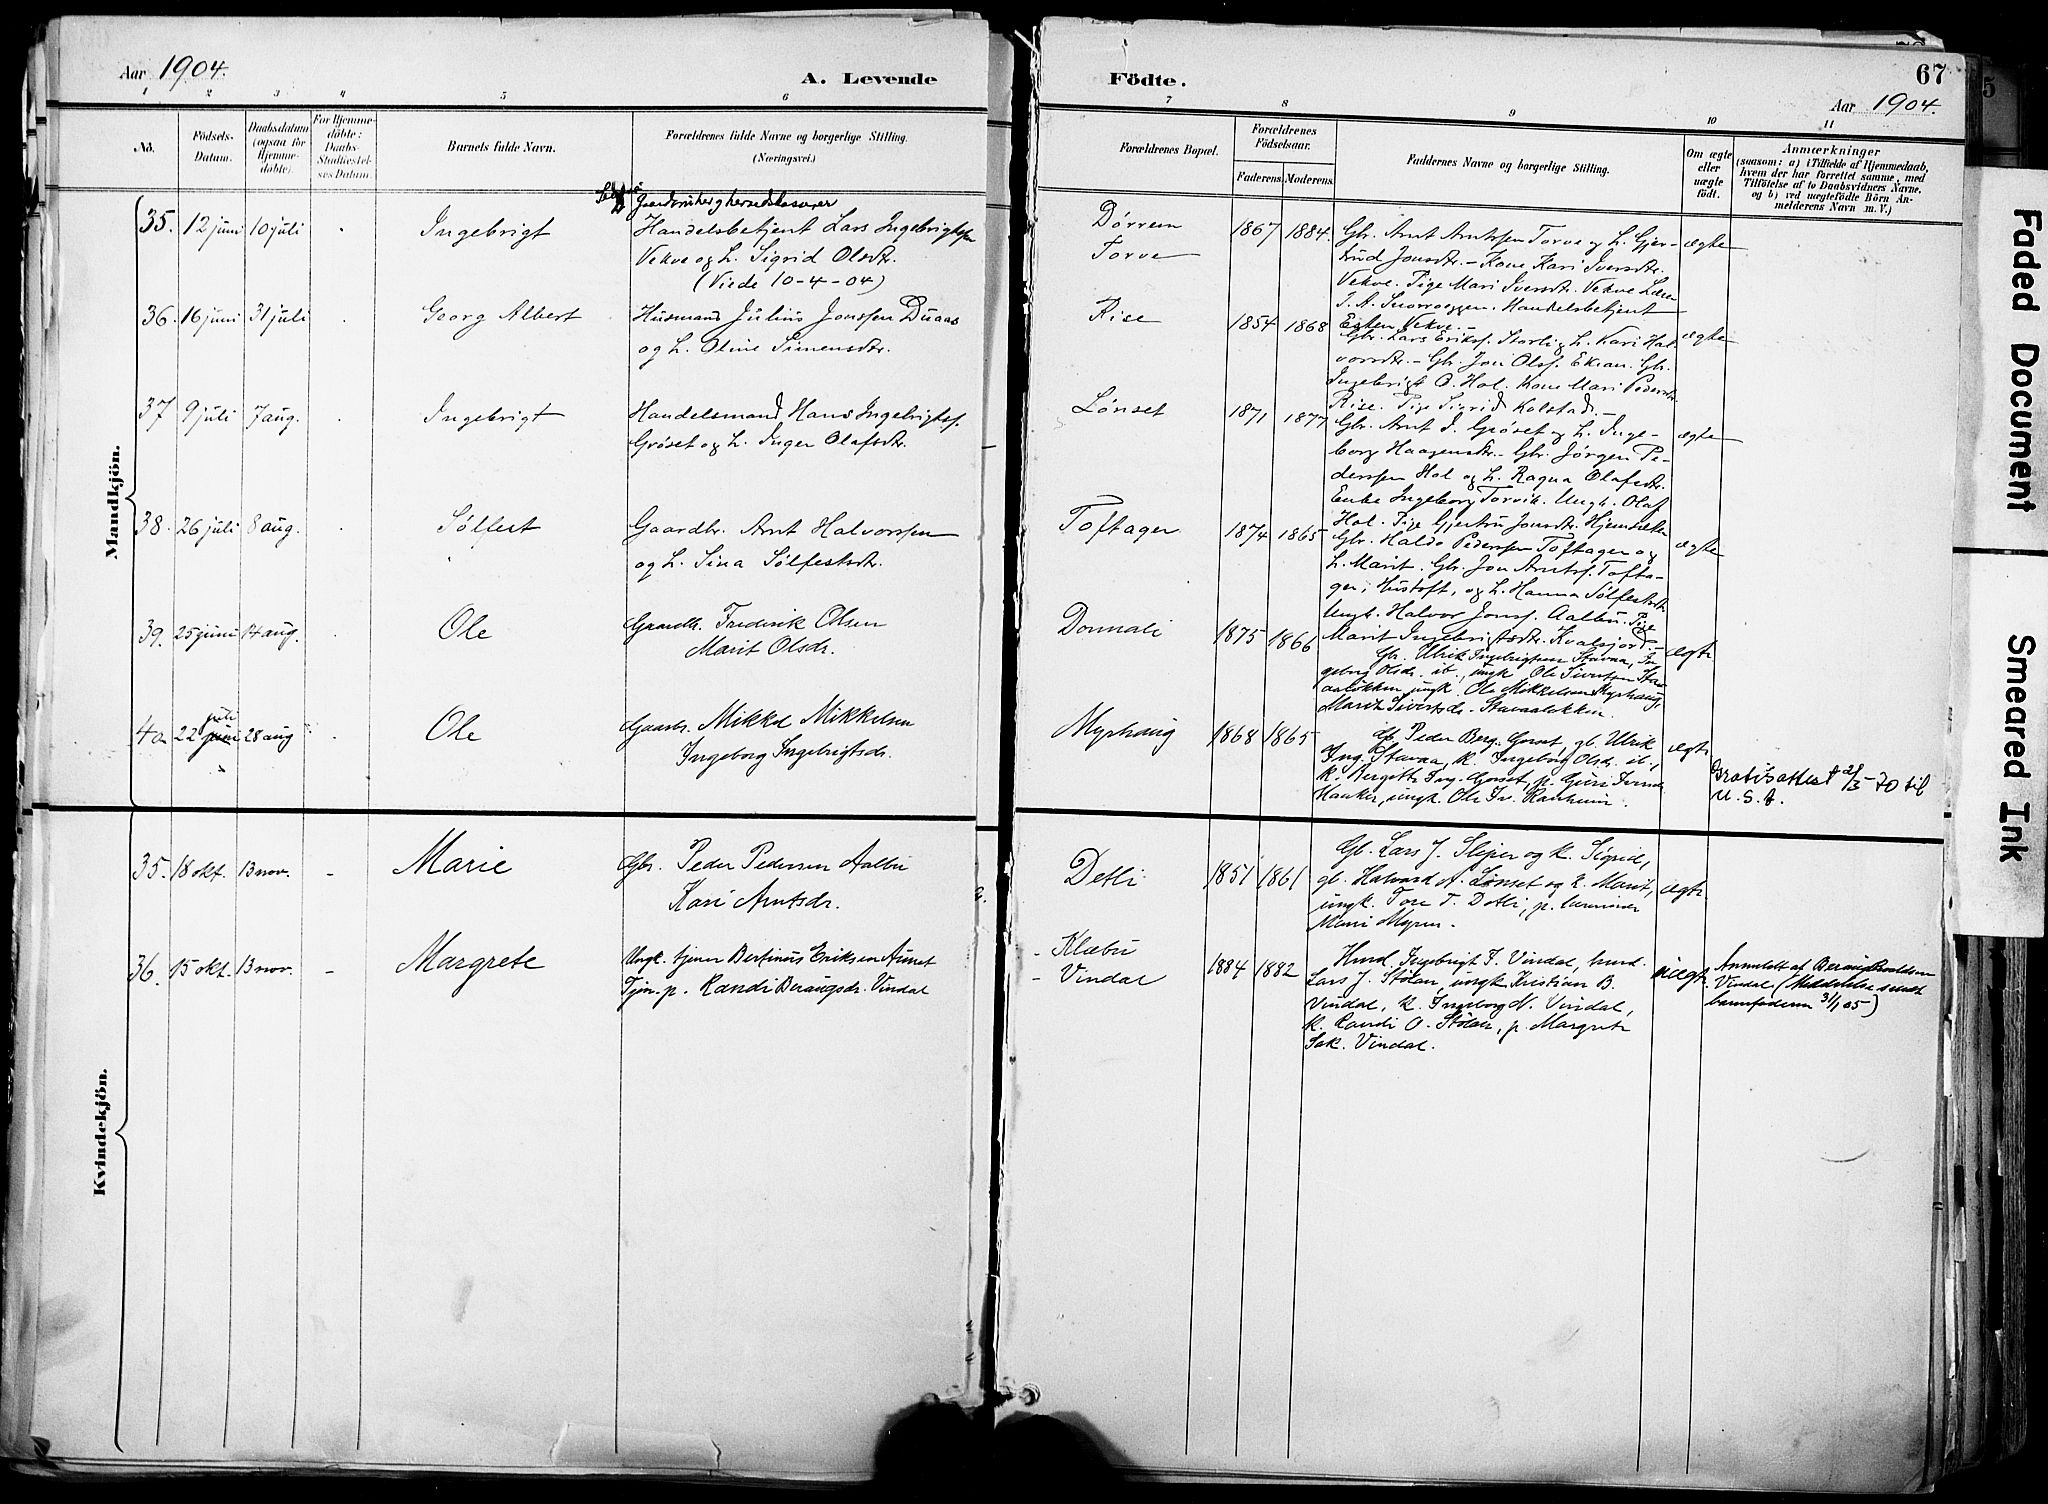 Aar 1904.
A. Levende
Födte.
67
Aar 1904.
1 2 3 4 5 6 7 8 9 10 11
No.
Födsels-
Datum.
Daabsdatum
(ogsaa for
Hjemme-
döbte).
For Hjemme-
döbte:
Daabs-
Stadfæstel-
ses Datum.
Barnets fulde Navn.
Forældrenes fulde Navne og borgerlige Stilling.
(Næringsvei.)
Forældrenes Bopæl.
Forældrenes
Födselsaar.
Faderens. Moderens.
Faddernes Navne og borgerlige Stilling.
Om ægte
eller
uægte
födt.
Anmærkninger
(saasom: a) i Tilfælde af Hjemmedaab,
hvem der har forrettet samme, med
Tilföielse af to Daabsvidners Navne,
og b) ved uægtefödte Börn An-
melderens Navn m. V.)
Mandkjön.
35. 12 juni 10 juli
Ingebrigt
Handelsbetjent Lars Ingebrigtsen
Vekve og h. Sigrid Olsdtr.
(Viede 10-4-04)
Dørrem
Torve
1867 1884.
Gbr. Arnt Arntssen Torve og h. Gjer-
trud Jonsdtr. - Kone Kari Iversdtr.
Vekve. Pige Mari Iversdtr. Vekve
Handelsbetjent
Vekve. -
ægte
36. 16 juni 31 juli
Georg Albert
Husmand Julius Jonssen Duaas
og h. Oline Simensdtr.
Rise
1854 1868
Gbr. Lars Eriks. Storli og h. Kari Hal-
vorsdtr. - Gbr. Jon Olsf. Ekran. Gbr.
Ingebrigt O. Hol. Kone Mari Pedersdtr.
Rise. Pige Sigrid Kolstad. -
ægte
37 9 juli 7 aug.
Ingebrigt
Handelsmand Hans Ingebrigtsf.
Grøset og h. Inger Olafsdtr.
Lønset
1871 1877
Gbr. Arnt I. Grøset og h. Inge-
borg Haagensdtr. - Gbr. Jørgen Pe-
derssen Hol og h. Ragna Olafsdtr.
Enke Ingeborg Torvik. Ungk. Olaf
Hol. Pige Gjertru Jonsdtr.
ægte
38. 26 juli 8 aug.
Sølfest
Gaardbr. Arnt Halvorssen
og h. Sina Sølfestsdtr.
Toftager
1874 1865
Gbr. Haldo Pederssen Toftager og
h. Marit. Gbr. Jon Arntsf. Tofta-
ger, Hustoft, og h. Hanna Sølfestsdtr.
Ungk. Halvor Jonsf. Aalbu. Pige
Marit Ingebrigtsdtr. Kvalsjord. -
ægte
39. 25 juni 14 aug.
Ole
Gaardbr. Frederik Olsen
Marit Olsdr.
Donnali
1875 1866
Gbr. Ulrik Ingebrigtsen Stavaa, In-
geborg Olsdr. ib., ungk. Ole Sivertsen Sta-
vaaløkken, ungk. Ole Mikkelsen Myrhaug,
Marit Sivertsdr. Stavaaløkken.
ægte
40 22 juni juli 28 aug
Ole
Gaardbr. Mikkel Mikkelsen
Ingeborg Ingebrigtsdr.
Myrhaug
1868 1865
Gb. Peder Berg. Gorset, gb. Ulrik
Ing. Stavaa, k. Ingeborg Olsdr. ib.,
k. Bergotte Ing. Gorset, p. Guri
Hauker, ungk. Ole Ranheim.
ægte
Gratisattest 21/3-70 til
U.S.A.
Kvindekjön.
35. 18 okt. 13 nov. -
Marie
Gbr. Peder Pedersen Aalbu
Kari Arntsdr.
Detli
1851 1861
Gb. Lars J. Sliper og k. Sigrid,
gb. Halvard A. Lønset og k. Marit,
ungk. Tore T. Detli, p.
Mari Myren.
ægte
36. 15 okt. 13 nov. -
Margrete
Ungk. tjener Bertinus Eriksen Aunet
Tjen. p. Randi Beraugsdr. Vindal
- Klæbu
- Vindal
1884 1882
Husmd. Ingebrigt F. Vindal, husmd.
Lars J. Stølan, ungk Kristian B.
Vindal, k. Ingeborg N. Vindal,
k. Randi O. Stølan, p. Margrete
Sak. Vindal.
uægte
Anmeldt af Beraug
Vindal (Meddelelse sendt
barnefaderen 31/1 05)
Faded Document
Smeared Ink